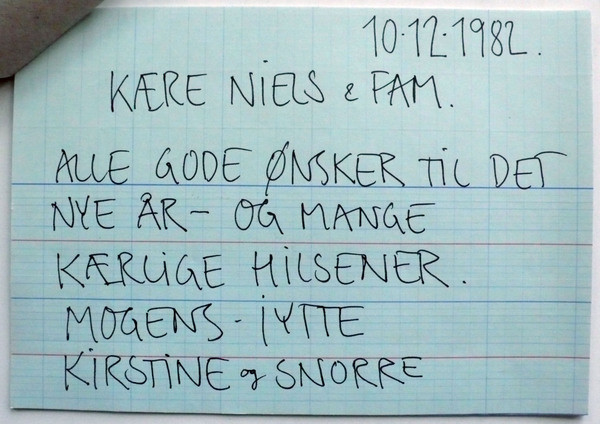 10.12.1982.
KÆRE NIELS & FAM.
ALLE GODE ØNSKER TIL DET
NYE ÅR - OG MANGE
KÆRLIGE HILSENER.
MOGENS - JYTTE
KIRSTINE og SNORRE